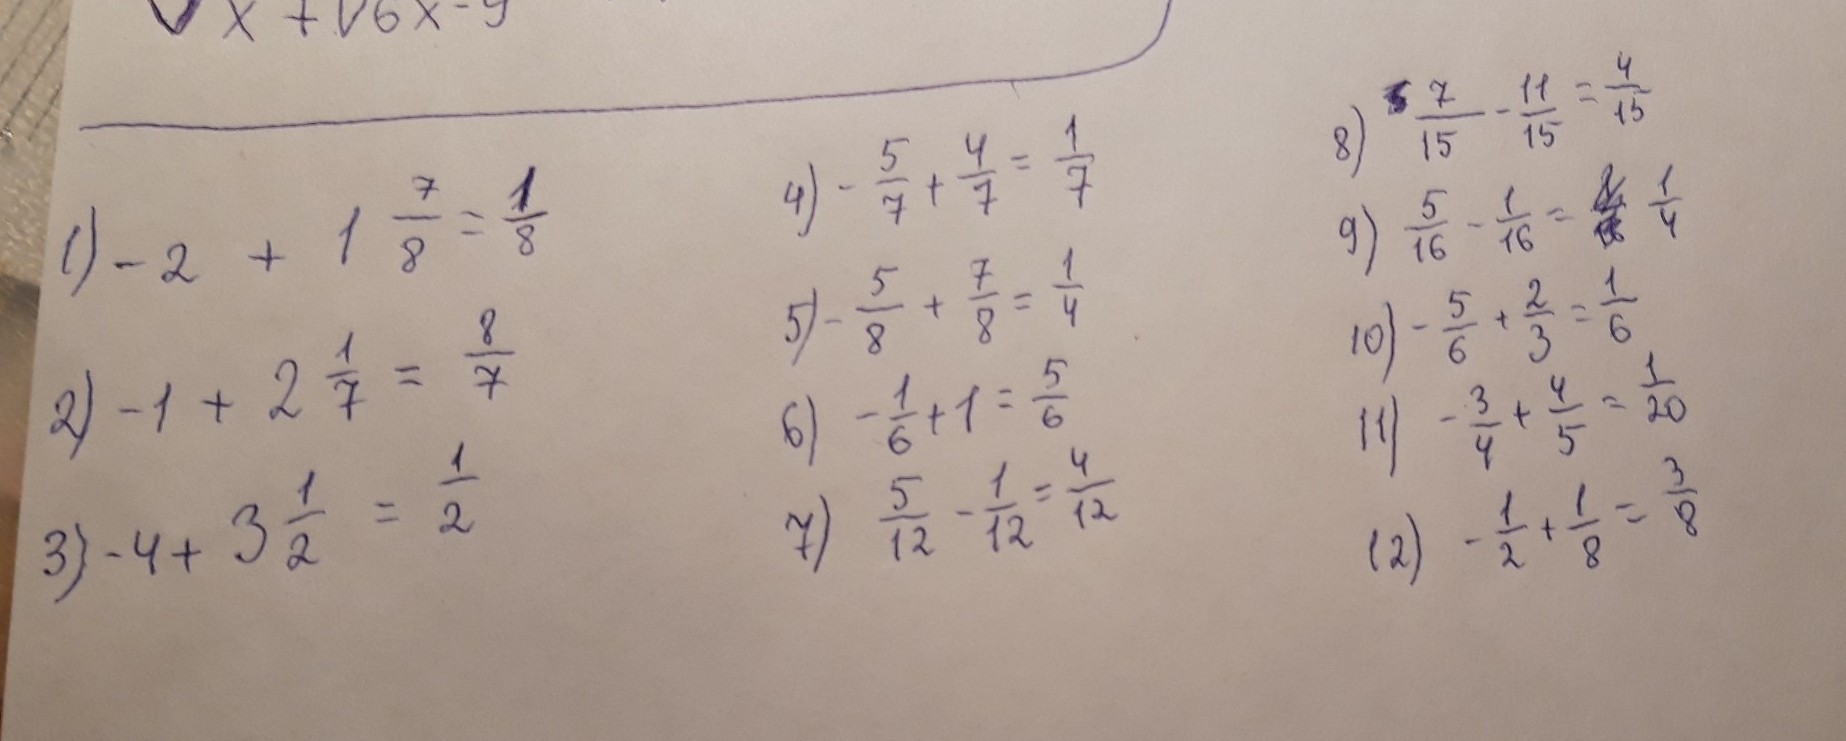 √x + √6x-9
1) -2 + 1 7/8 = 1/8
2) -1 + 2 1/7 = 8/7
3) -4 + 3 1/2 = 1/2
4) -5/7 + 4/7 = 1/7
5) -5/8 + 7/8 = 1/4
6) -1/6 + 1 = 5/6
7) 5/12 - 1/12 = 4/12
8) 7/15 - 11/15 = 4/15
9) 5/16 - 1/16 = 1/4
10) -5/6 + 2/3 = 1/6
11) -3/4 + 4/5 = 1/20
12) -1/2 + 1/8 = 3/8